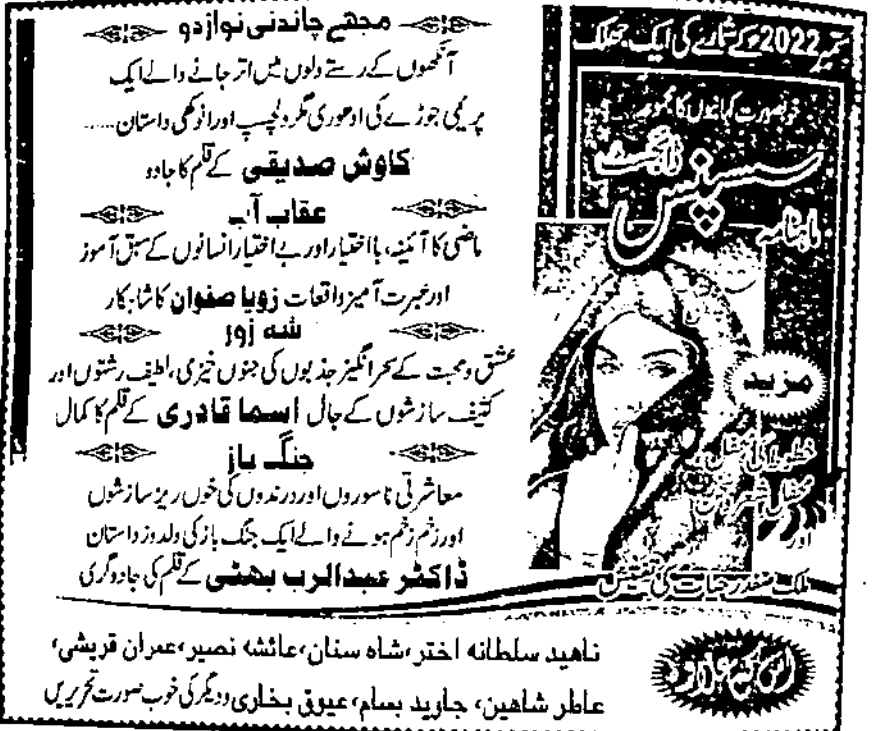 ستمبر 2022ء کے شمارے کی ایک جھلک
خوبصورت کہانیوں کا مجموعہ
ماہنامہ سسپنس ڈائجسٹ
مزید
خطوط کی محفل
محفل شعر و سخن
اور
ملک صفدر حیات کی تفتیش
مجھے چاندنی نواز دو
آنکھوں کے رستے دلوں میں اتر جانے والے ایک
پریمی جوڑے کی ادھوری مگر دلچسپ اور انوکھی داستان.....
کاوش صدیقی کے قلم کا جادو
عقاب آب
ماضی کا آئینہ، بااختیار اور بے اختیار انسانوں کے سبق آموز
اور عبرت آمیز واقعات زویا صفوان کا شاہکار
شہ زور
عشق و محبت کے سحر انگیز جذبوں کی جنوں خیزی، لطیف رشتوں اور
کثیف سازشوں کے جال اسما قادری کے قلم کا کمال
جنگ باز
معاشرتی ناسوروں اور درندوں کی خوں ریز سازشوں
اور زخم زخم ہونے والے ایک جنگ باز کی دلدوز داستان
ڈاکٹر عبدالرب بھٹی کے قلم کی جادوگری
اس کے علاوہ
ناھید سلطانہ اختر، شاہ سنان، عائشہ نصیر، عمران قریشی،
عاطر شاھین، جاوید بسام، عیوق بخاری و دیگر کی خوب صورت تحریریں